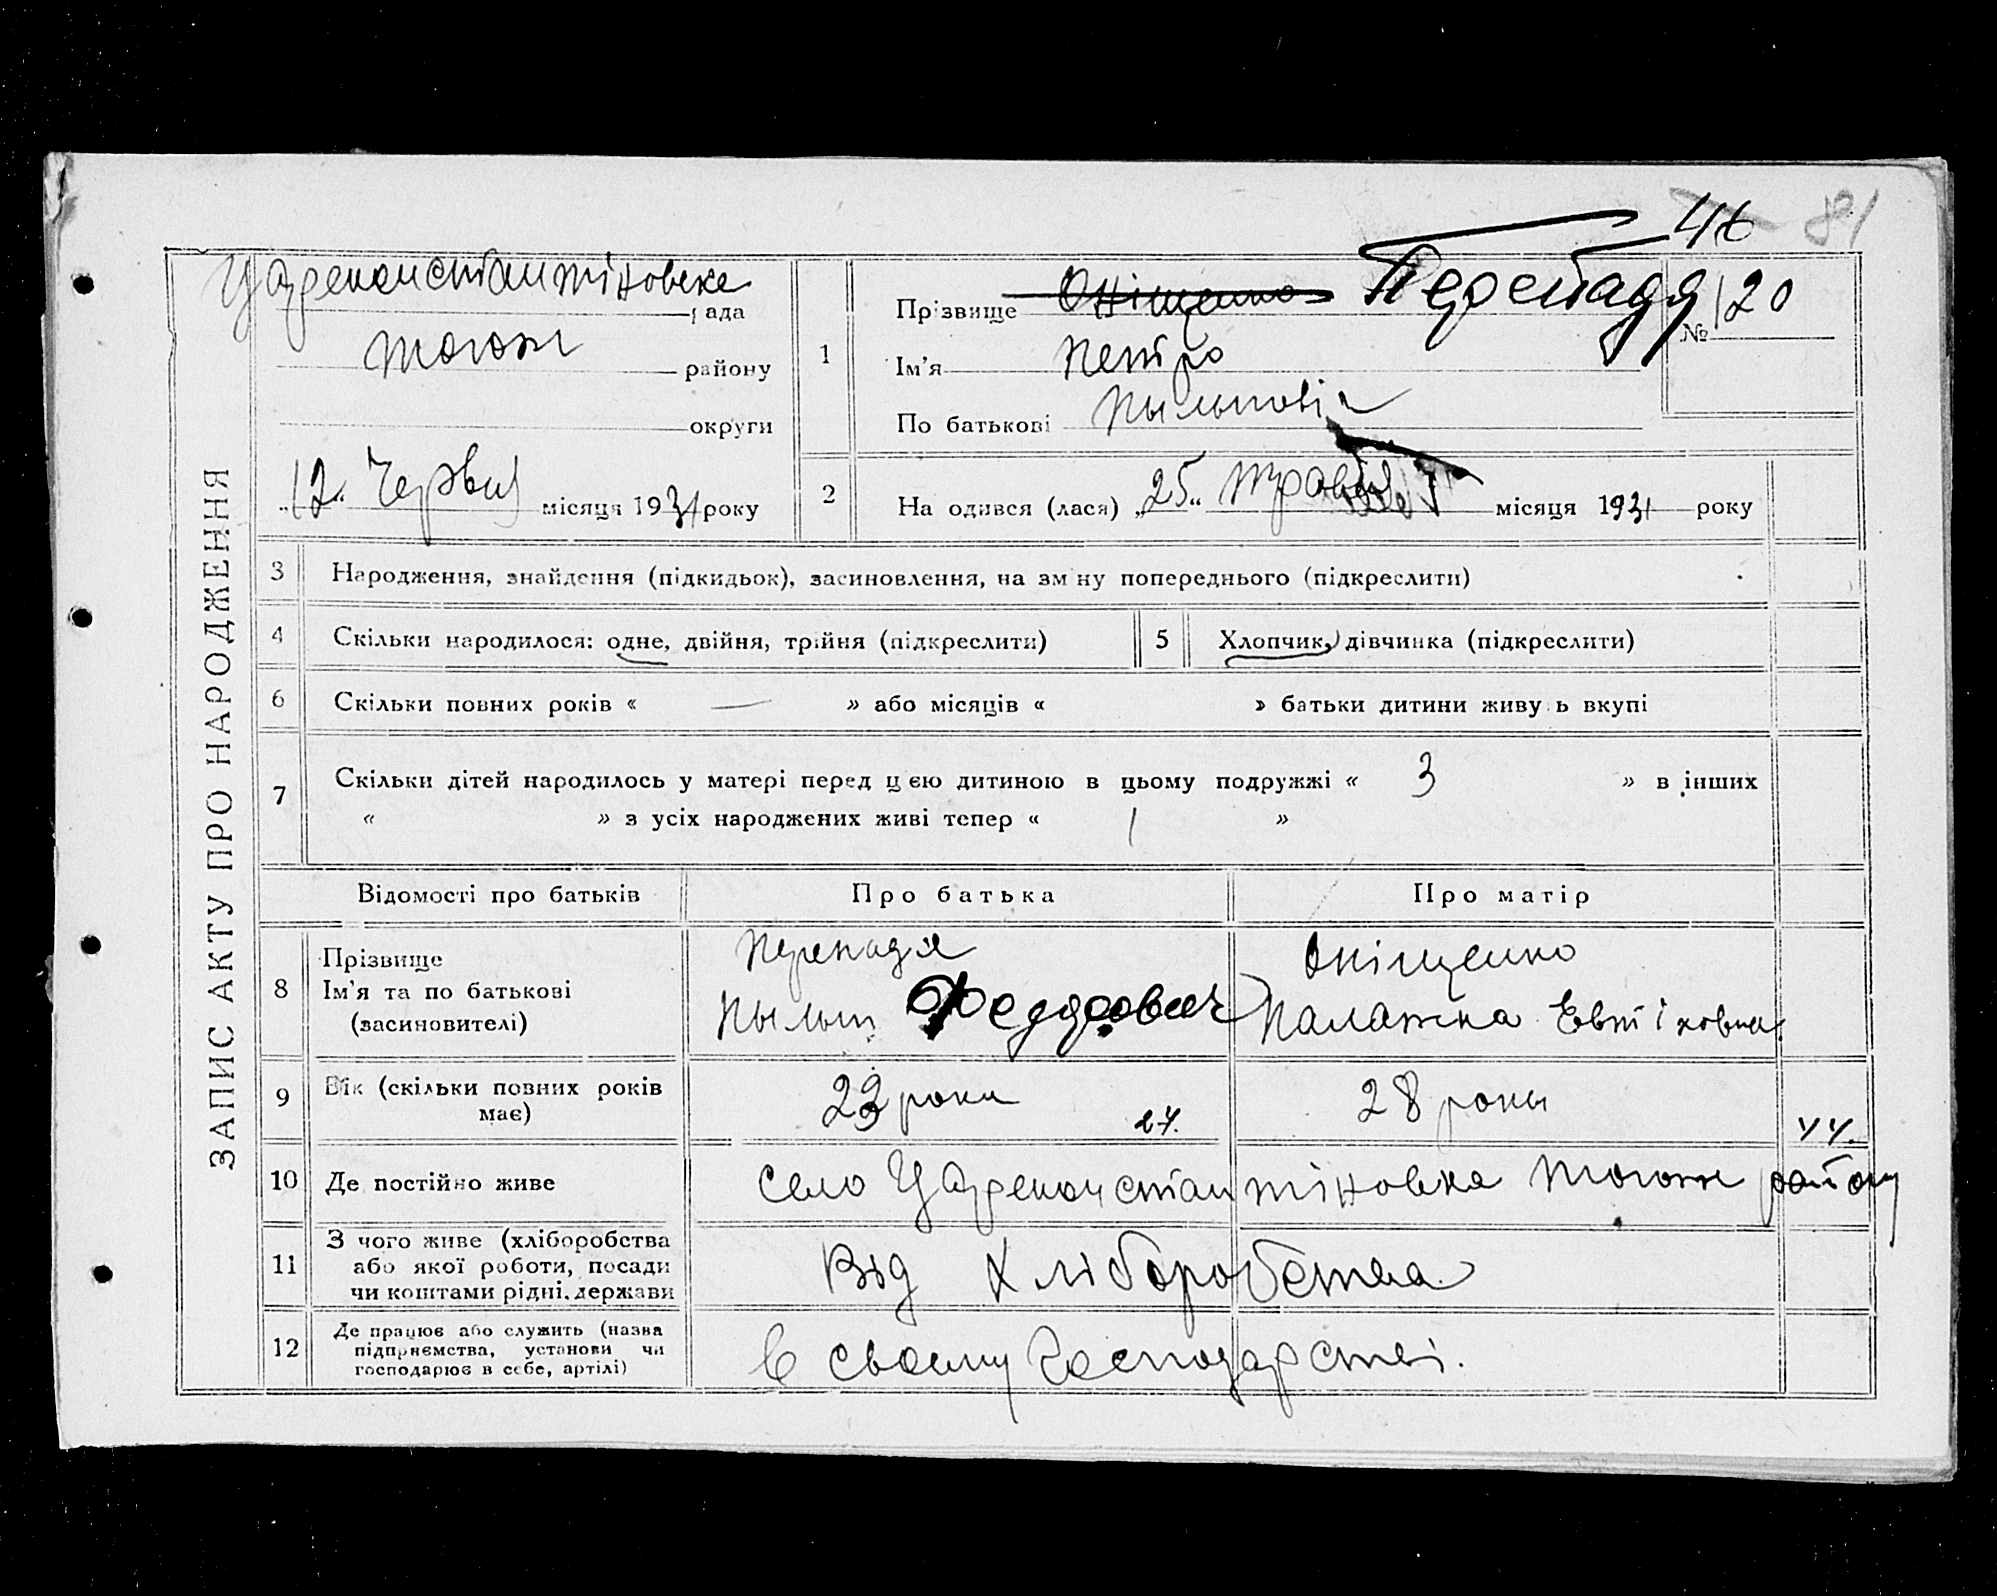 46 81
ЗАПИС АКТУ ПРО НАРОДЖЕННЯ
Цареконстантіновске
рада
району
округи
"12" Червня місяця 1931 року
1
Прізвище Оніщенко Перепадя
№ 120
Ім'я Петро
По батькові Пылыпові
2
На одився (лася) "25" травня місяця 1931 року
3 Народження, знайдення (підкидьок), засиновлення, на зміну попереднього (підкреслити)
4 Скільки народилося: одне, двійня, трійня (підкреслити)
5 Хлопчик, дівчинка (підкреслити)
6 Скільки повних років « — » або місяців « » батьки дитини живу ь вкупі
7 Скільки дітей народилось у матері перед цією дитиною в цьому подружжі « 3 » в інших
« » з усіх народжених живі тепер « 1 »
Відомості про батьків Про батька Про матір
8 Прізвище
Ім'я та по батькові
(засиновителі)
Перепадя
Пылып Федорович
Оніщенко
Палажка Евтіховна
9 Вік (скільки повних років
має)
23 роки
28 роки
10 Де постійно живе село Цареконстантіновка району
11 З чого живе (хліборобства
або якої роботи, посади
чи коштами рідні, держави
Від Хліборобства
12 Де працює або служить (назва
підприємства, установи чи
господарює в себе, артілі)
в своему господарстві.